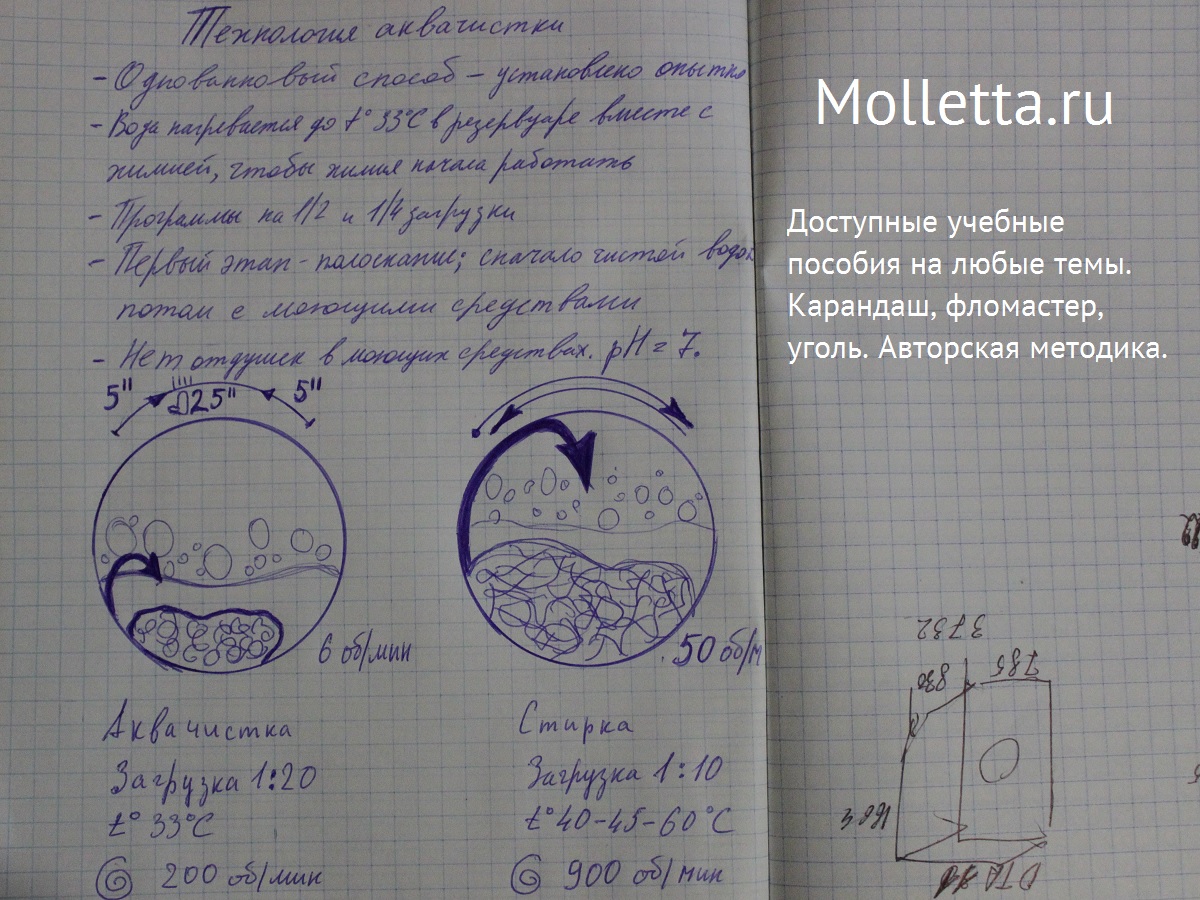 Технология аквачистки
- Однованновый способ – установлено опытно
- Вода нагревается до t° 33°C в резервуаре вместе с
химией, чтобы химия начала работать
- Программы на 1/2 и 1/4 загрузки
- Первый этап - полоскание; сначало чистой водой
потом с моющими средствами
- Нет отдушек в моющих средствах. pH = 7.
5" 25" 5"
6 об/мин
50 об/м
Аквачистка
Загрузка 1:20
t° 33°C
200 об/мин
Стирка
Загрузка 1:10
t° 40-45-60°C
900 об/мин
Molletta.ru
Доступные учебные
пособия на любые темы.
Карандаш, фломастер,
уголь. Авторская методика.
3732
830
785